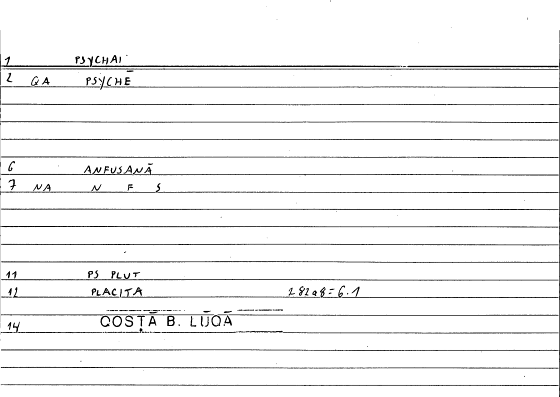 1 PSYCHAI
2 QA PSYCHĒ
6 ANFUSANĀ
7 NA N F S
11 PS PLUT
12 PLACITA 282a8=6.1
14 QOSṬĀ B. LŪQĀ